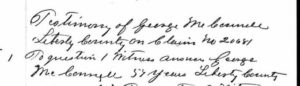 Testimony of George McConnell
Liberty County on Claim No 20681
1 To question 1 Witness answer George
McConnell 58 Years Liberty County